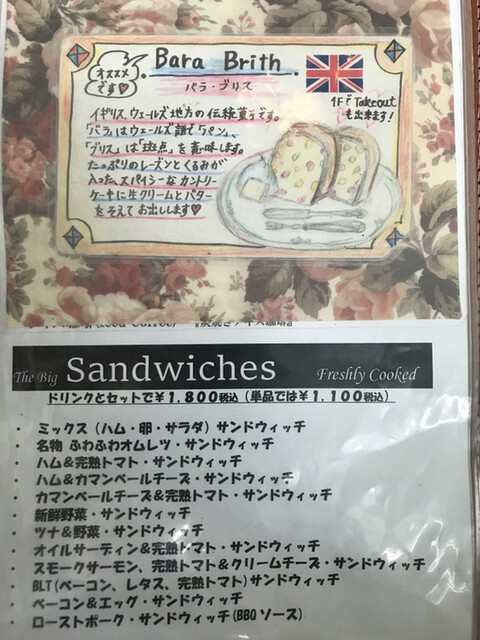 オススメ
です♥
Bara Brith
バラ・ブリス
1Fで Takeout
も出来ます!
イギリス、ウェールズ地方の伝統菓子です。
「バラ」はウェールズ語で「パン」、
「ブリス」は「斑点」を意味します。
たっぷりのレーズンとくるみが
入った、スパイシーなカントリー
ケーキに生クリームとバター
をそえてお出しします♥
The Big Sandwiches Freshly Cooked
ドリンクとセットで¥1,800税込(単品では¥1,100税込)
・ ミックス(ハム・卵・サラダ)サンドウィッチ
・ 名物 ふわふわオムレツ・サンドウィッチ
・ ハム&完熟トマト・サンドウィッチ
・ ハム&カマンベールチーズ・サンドウィッチ
・ カマンベールチーズ&完熟トマト・サンドウィッチ
・ 新鮮野菜・サンドウィッチ
・ ツナ&野菜・サンドウィッチ
・ オイルサーディン&完熟トマト・サンドウィッチ
・ スモークサーモン、完熟トマト&クリームチーズ・サンドウィッチ
・ BLT(ベーコン、レタス、完熟トマト)サンドウィッチ
・ ベーコン&エッグ・サンドウィッチ
・ ローストポーク・サンドウィッチ(BBQ ソース)